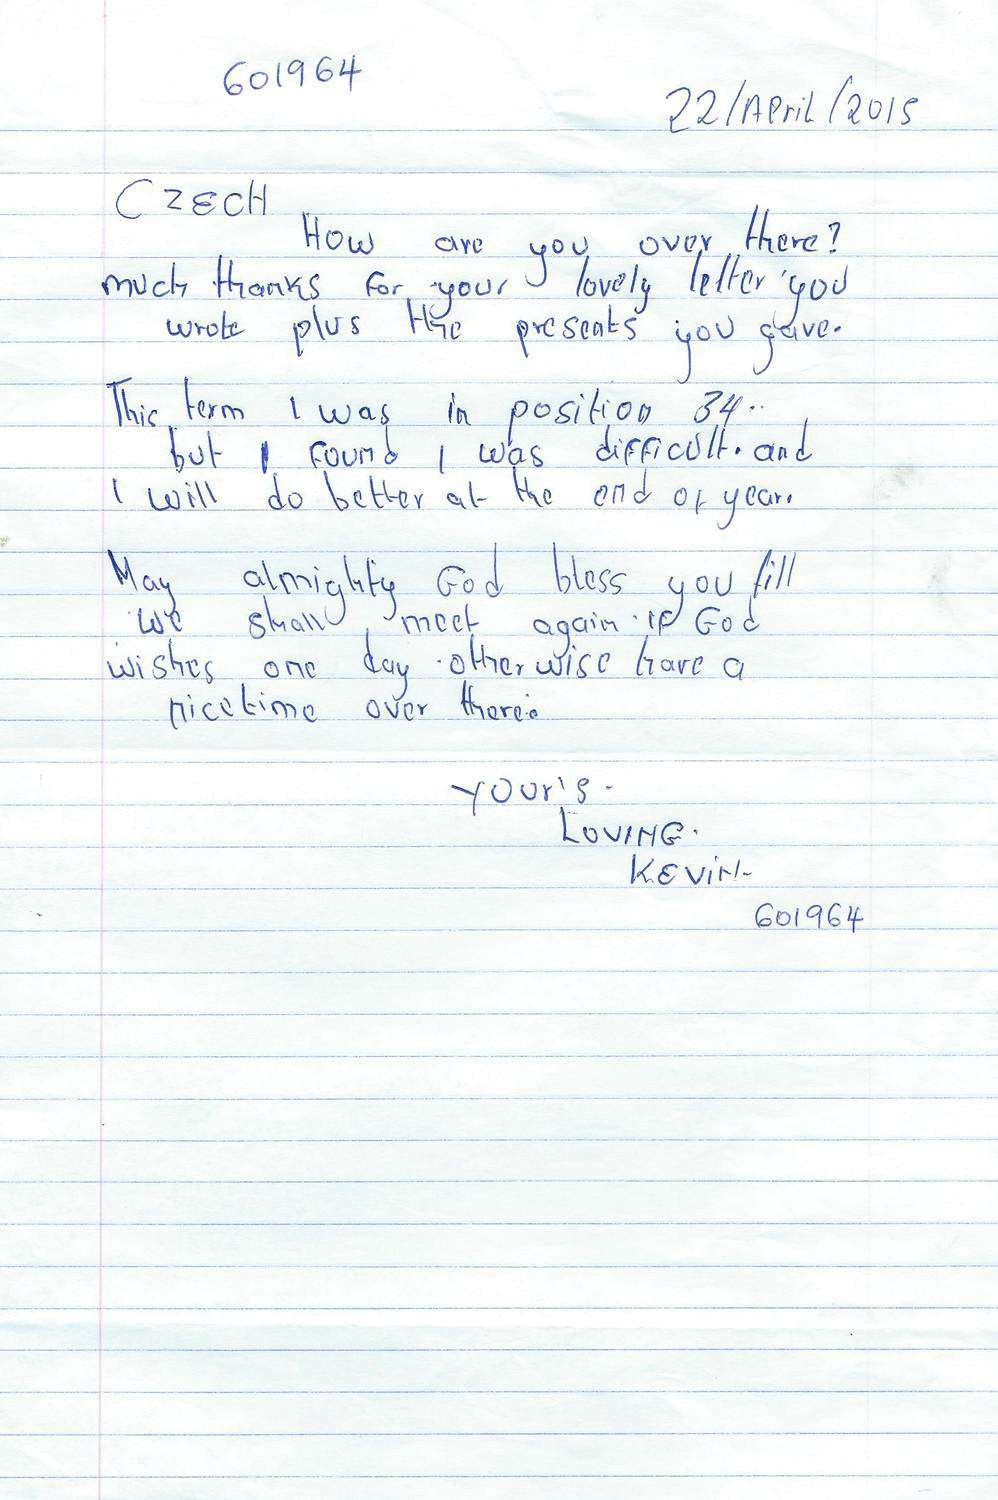 601964
22/April/2015
CZECH
How are you over there?
much thanks for your lovely letter you
wrote plus the presents you gave.
This term I was in position 34..
but I found I was difficult. and
I will do better at the end of year.
May almighty God bless you till
we shall meet again if God
wishes one day otherwise have a
nice time over there.
Your's.
LOVING.
KEVIN.
601964